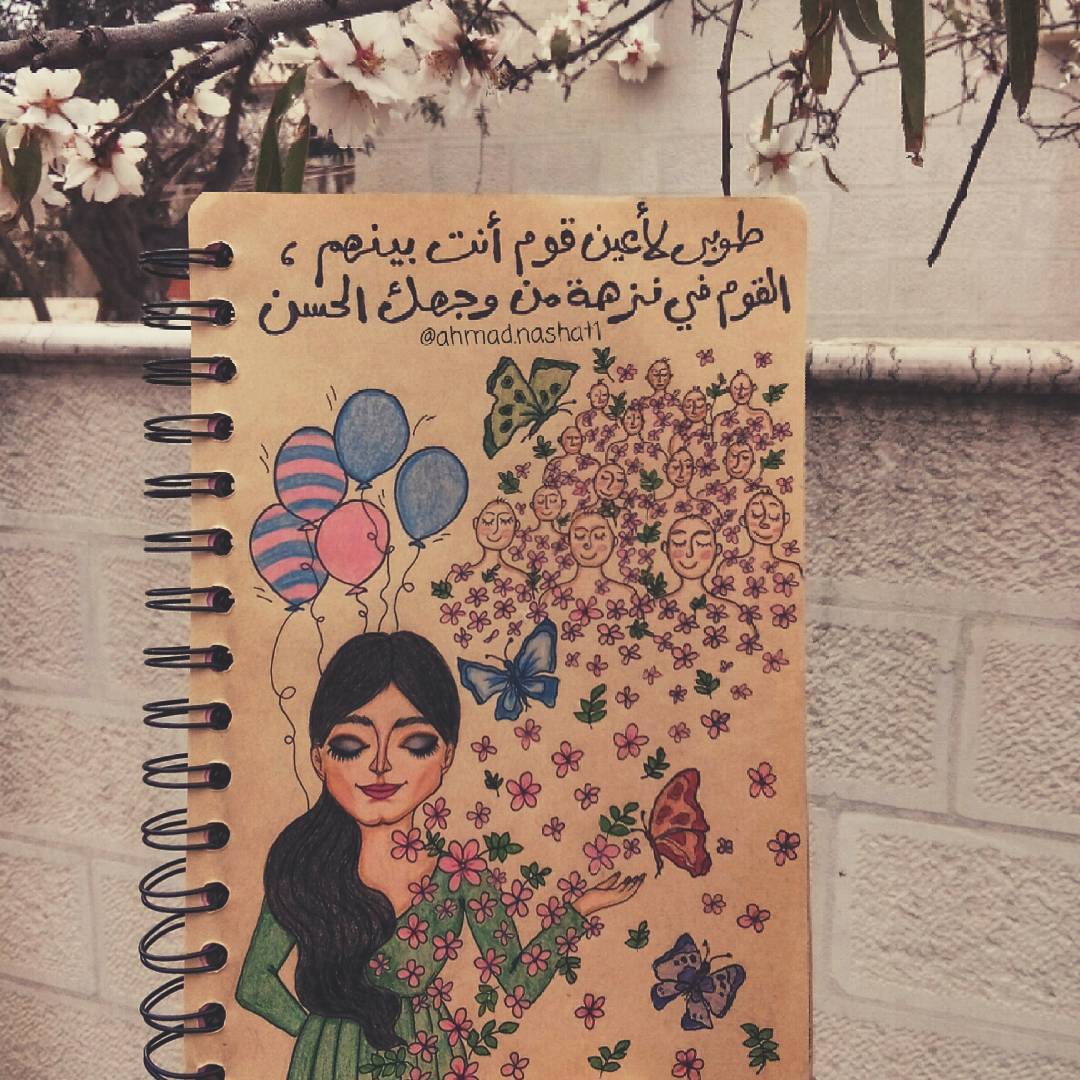 طوبى لأعين قوم أنت بينهم ،
القوم في نزهة من وجهك الحسن
@ahmad.nashat1